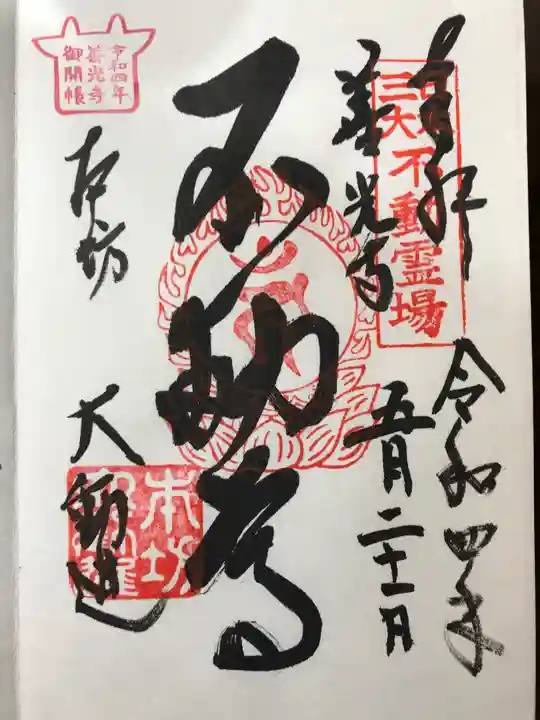 奉拝
令和四年
五月二十一日
善光寺
三大不動霊場
不動尊
本坊
大勧進
本坊
令和四年
善光寺
御開帳